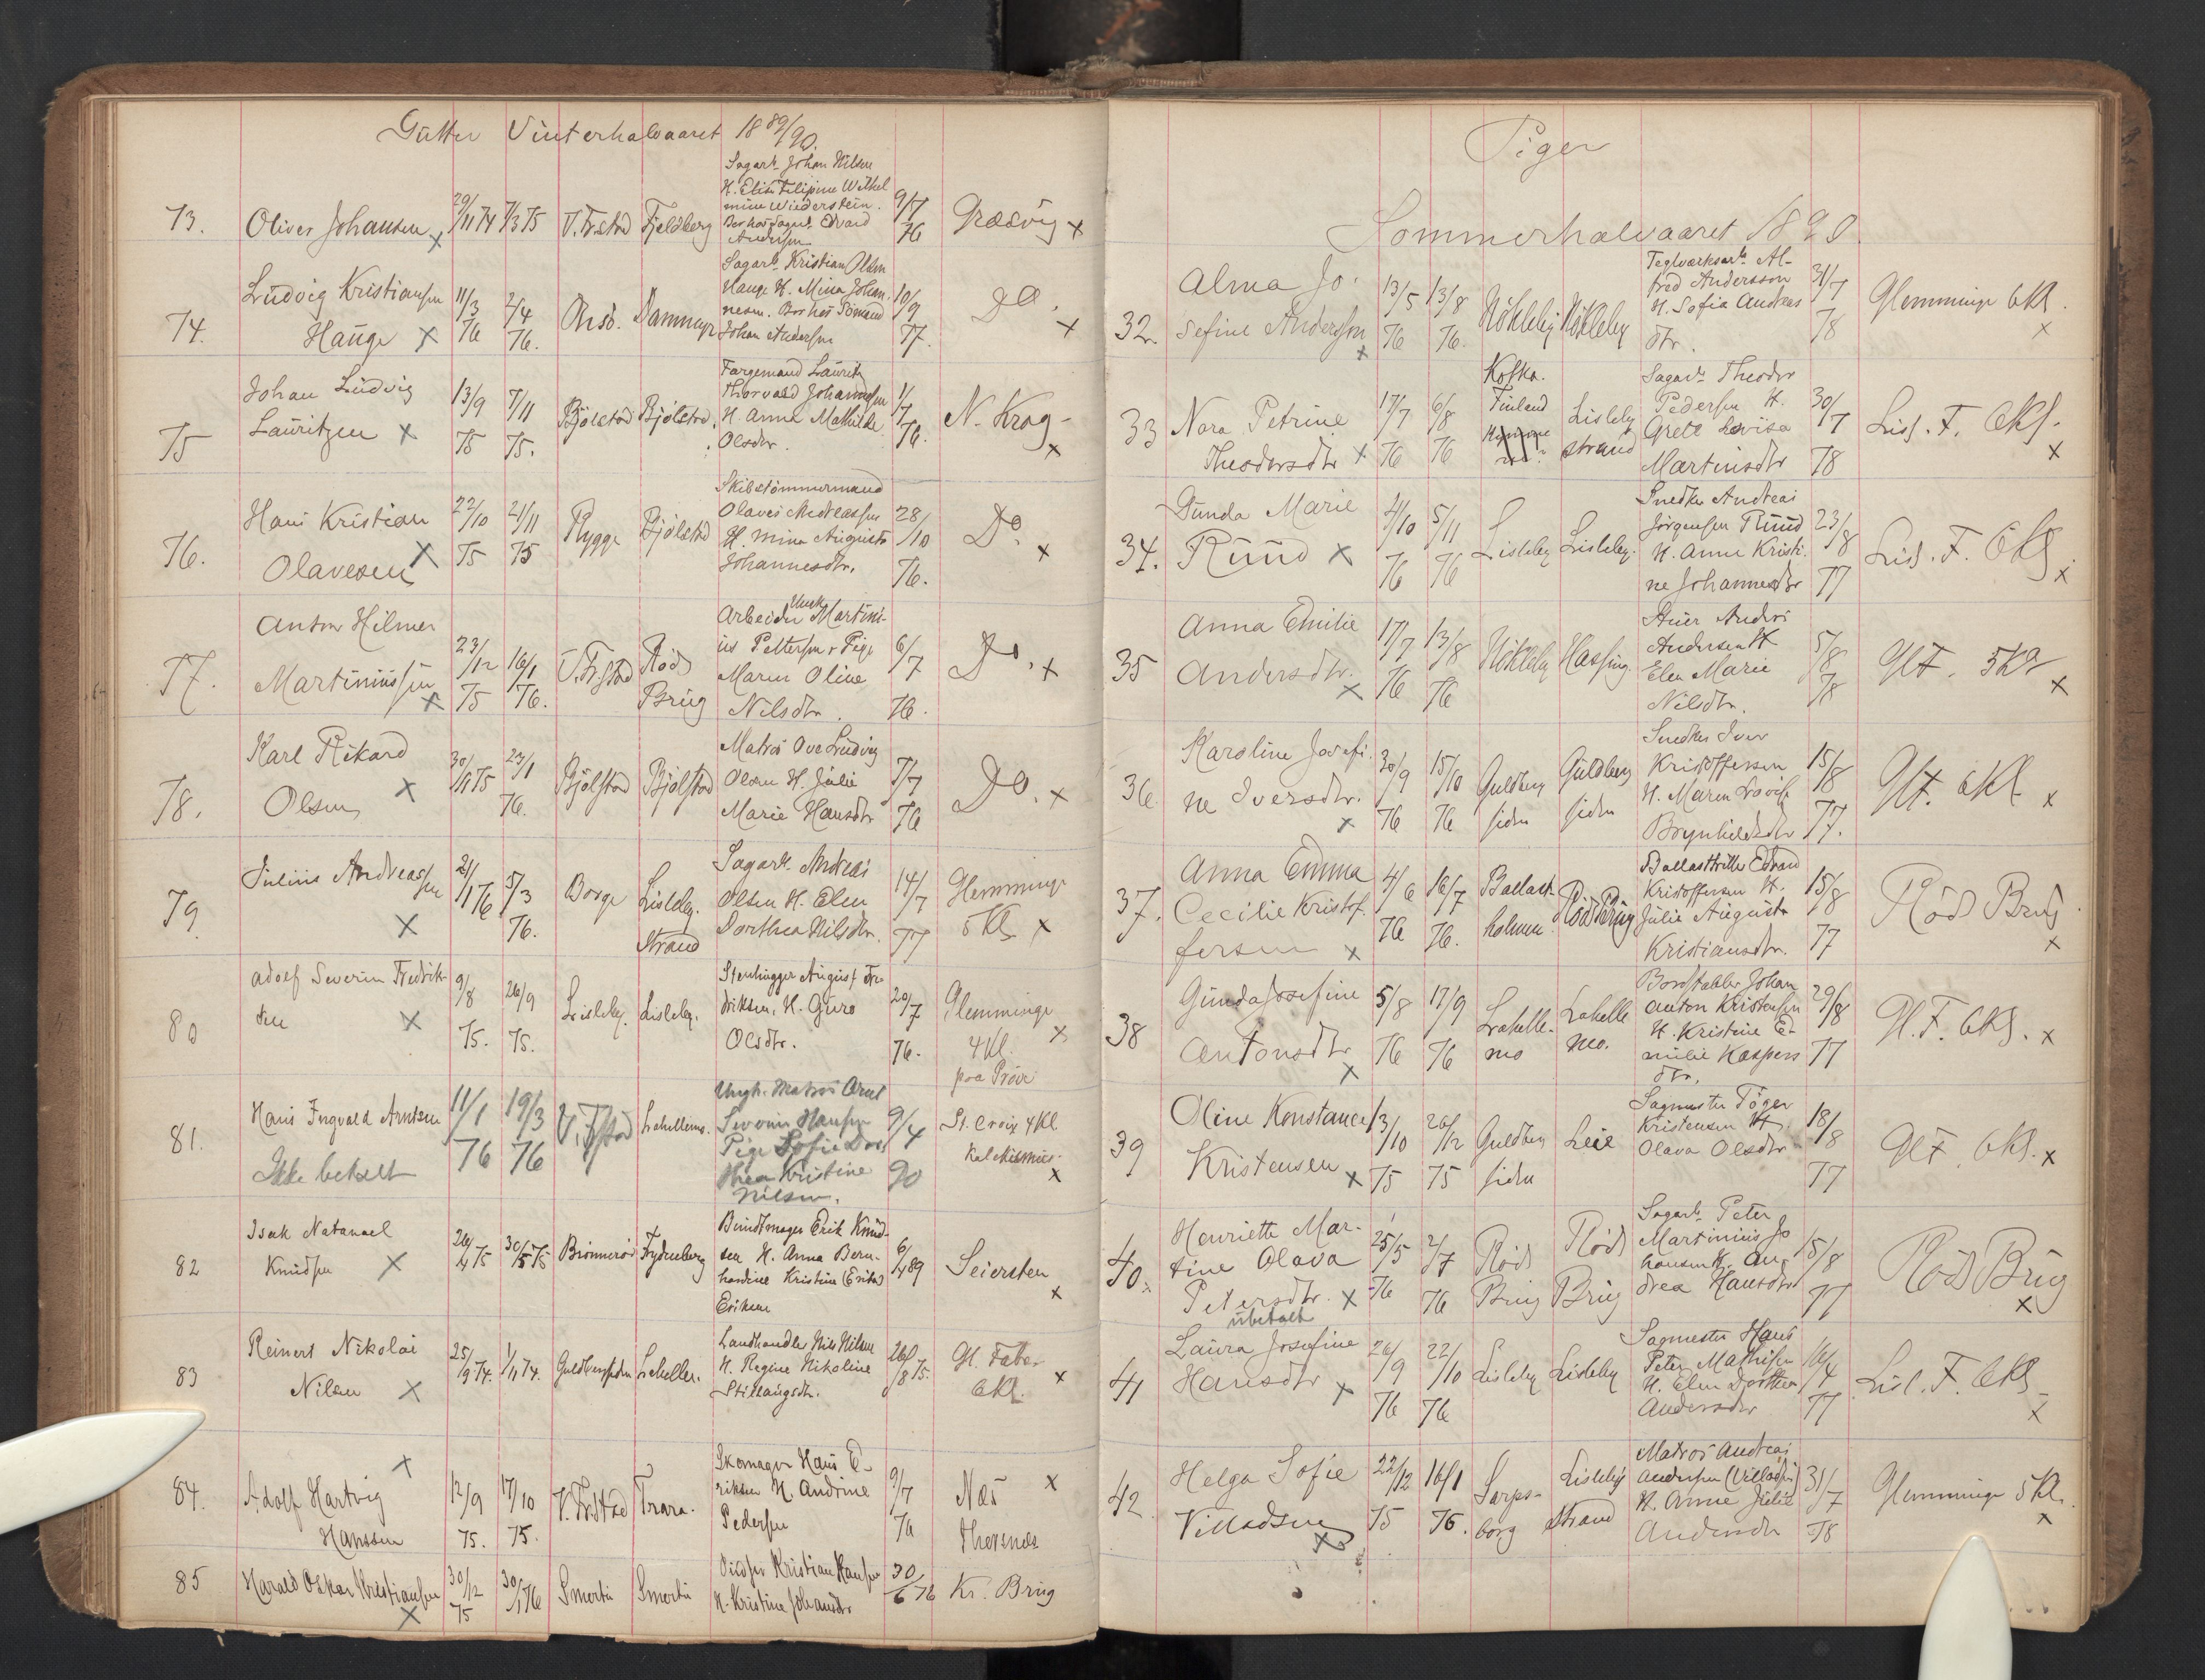 Gutter Vinterhalvaaret 18 89/90.
73. Oliver Johansen x 29/11 74 7/3 75 V. Fr.stad Fjeldberg
Sagarb. Johan Nilsen
H. Elise Filipine Wilhel
mine Wiederstein.
Bor hos Sagarb. Edvard
Andersen
9/7 76 Græsvig x
74. Ludvig Kristiansen
Hauge x 11/3 76 2/4 76. Onsö. Dammyr
Sagarb. Kristian Olsen
Hauge H. Mina Johan
nesen. Bor hos Sömand
Johan Andersen
10/9 77. Do. x
75 Johan Ludvig
Lauritzen x 13/9 75 7/11 75. Bjölstad Bjölstad.
Fargemand Lauritz
Thorvald Johannesen
H. Anna Mathilde
Olsdtr.
1/7 76. N. Krog- x
76. Hans Kristian
Olavesen x 22/10 75 21/11 75 Rygge Bjölstad
Skibstömmermand
Olaves Andreassen
H. Mina Augusta
Johannesdtr.
28/10 76. Do. x
77. Anton Hilmer
Martiniussen x 23/12 75 16/1 76. V. Fr.stad Röds Brug
Arbeider Ungk. Martini-
us Pettersen & Pige
Maren Oline
Nilsdtr.
6/7 76. Do. x
78. Karl Rikard
Olsen x 30/11 75 23/1 76. Bjölstad Bjölstad
Matros Ove Ludvig
Olsen H. Julie
Marie Hansdtr
7/7 76 Do. x
79. Julius Andreassen
x 21/1 76 5/3 76. Borge Lisleby. Strand
Sagarb. Andreas
Olsen H. Elen
Dorthea Nilsdtr.
14/7 77 Glemminge
5 Kl. x
80 Adolf Severin Fredrik-
sen x 9/8 75. 26/9 75. Lisleby. Lisleby.
Stenhugger August Fre
driksen, H. Guro
Olsdtr.
20/7 76. Glemminge
4 Kl. x
paa Pröve
81. Hans Ingvald Arntsen
Ikke betalt 11/1 76 19/3 76 V. Fstad Lahellemo.
Ungk. Matros Arnt
Severin Hansen
Pige Sofie Dor
thea Kristine
Nilsen.
9/4 90 St. Croix 4 Kl.
Katekismus- x
82 Isak Natanael
Knudsen x 26/4 75 30/5 75 Brönneröd Frydenberg
Bundtmager Erik Knud-
sen H. Anna Bern-
hardine Kristine (Eriks)
Eriksen
6/4 89 Seiersten x
83 Reinert Nikolai
Nilsen x 25/9 74. 1/11 74. Guldbergsiden Laheller.
Landhandler Nils Nilsen
H. Regine Nikoline
Stillaugsdtr.
26/8 75. Gl. Faber
6 Kl. x
84. Adolf Hartvig
Hanssen x 12/9 75. 17/10 75. V. Fr.stad Trara.
Skomager Hans E-
riksen H. Andrine
Pedersen
9/7 76 Næs x
Thorsnes
85 Harald Oskar Kristiansen x 30/12 75 30/1 76 Smertu Smertu
Kristian Hansen
H. Kristine Johansdtr
30/6 76 Kr. Brug
Piger
Sommerhalvaaret 1890.
32. Alma Jo-
sefine Andersson x 13/5 76 13/8 76. Nökleby Nökleby
Teglværksarb. Al-
fred Andersson
H. Sofia Andreas
dtr.
31/7 78 Glemminge 6 Kl. x
33 Nora Petrine
Theodorsdtr x 17/7 76 6/8 76 Kotka. Finland Lisleby strand
Sagarb. Theodor
Pedersen H.
Grete Lovisa
Martinsdtr
30/7 78 Lisl. F. 6 Kl. x
34. Gunda Marie
Ruud x 4/10 76 5/11 76 Lisleby Lisleby.
Snedker Andreas
Jörgensen Ruud
H. Anne Kristi-
ne Johannesdtr
23/8 77 Lisl. F. 6 Kl. x
35 Anna Emilie
Andersdtr. x 17/7 76 13/8 76 Nökleby Hassing.
Anders
Andersen H.
Elen Marie
Nilsdtr.
5/8 78 Gl F. 5 Kl x
36 Karoline Josefi-
ne Iversdtr. x 30/9 76 15/10 76 Guldberg siden Guldberg siden
Snedker Iver
Kristoffersen
H. Maren Lovise
Brynhildsdtr
15/8 77. Gl F. 6 Kl x
37. Anna Emma
Cecilie Kristof-
fersen x 4/6 76 16/7 76. Ballast- holmen Röds Brug
Ballastskriver Edvard
Kristoffersen H.
Julie Augusta
Kristiansdtr.
15/8 77 Röds Brug. x
38 Gunda Josefine
Antonsdtr x 5/8 76 17/9 76 Lahelle- mo Lahelle mo.
Bordstabler Johan
Anton Kristensen
H. Kristine E-
milie Kaspers
dtr.
29/8 77 Gl. F. 6 Kl. x
39 Oline Konstance
Kristensen x 13/10 75 26/12 75 Guldberg siden Leie
Sagmester Töger
Kristensen H.
Olava Olsdtr
18/8 77 Gl F. 6 Kl. x
40. Henriette Mar-
tine Olava
Petersdtr. x
ubetalt 25/5 76 2/7 76 Röds Brug Röds Brug
Sagarb. Peter
Martinius Jo
hansen H. An-
drea Hansdtr
15/8 77 Röds Brug x
41 Laura Josefine
Hansdtr x 26/9 76 22/10 76 Lisleby Lisleby
Sagmester Hans
Peter Mathisen
H. Elen Dorthea
Andersdtr
16/4 77 Lisl. F. 6 Kl x
42. Helga Sofie
Villadsen x 22/12 75 16/1 76. Sarps- borg Lisleby strand
Matros Andreas
Andersen (Villadsen)
H. Anne Julie
Andersdtr
31/7 78 Glemminge 5 Kl. x